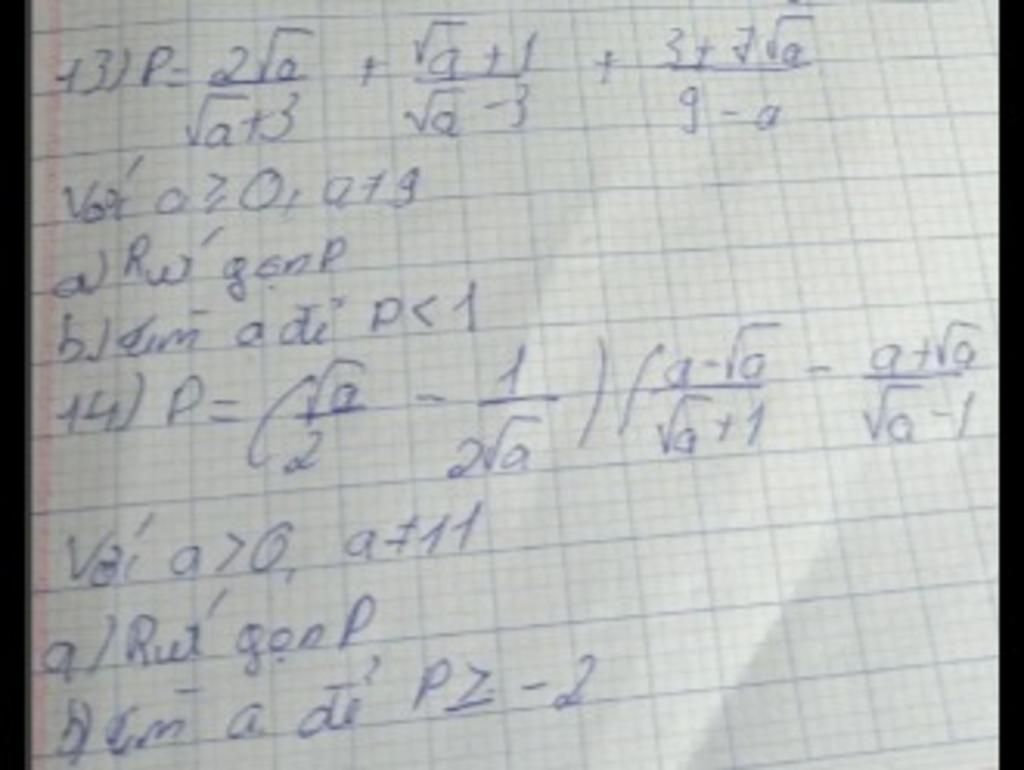 13) P = 2√a/(√a+3) + (√a+1)/(√a-3) + (3+7√a)/(9-a)
Với a ≥ 0, a ≠ 9
a) Rút gọn P
b) tìm a để P < 1
14) P = (√a/2 - 1/(2√a)) ((a-√a)/(√a+1) - (a+√a)/(√a-1)
Với a > 0, a ≠ 11
a) Rút gọn P
b) tìm a để P ≥ -2